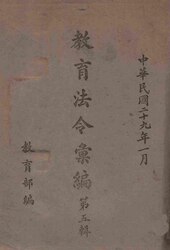 中華民國二十九年一月
教育法令彙編第五輯
教育部編